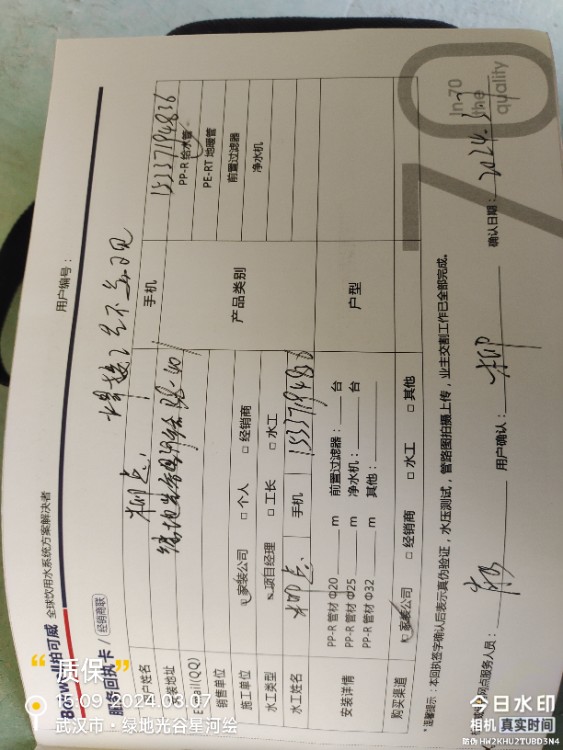 全球饮用水系统方案解决者
服务回执卡 / 经销商联
用户编号：
手机 15337194836
E-mail(QQ)
产品类别
PP-R 给水管
PE-RT 地暖管
前置过滤器
净水机
销售单位 家装公司 □ 个人 □ 经销商
施工单位
水工类型 项目经理 □ 工长 □ 水工
水工姓名 手机 15337194836
户型
安装详情
PP-R 管材 Φ20 m 前置过滤器： 台
PP-R 管材 Φ25 m 净水机： 台
PP-R 管材 Φ32 m 其他：
购买渠道 家装公司 □ 经销商 □ 水工 □ 其他
* 温馨提示：本回执签字确认后表示真伪验证，水压测试，管路图拍摄上传，业主交割工作已全部完成。
网点服务人员： 用户确认： 确认日期：
70
In-70
the
quality
“质保”
16:09 2024.03.07
武汉市·绿地光谷星河绘
今日水印
相机 真实时间
防伪 HW2KHU2TUBD3N4